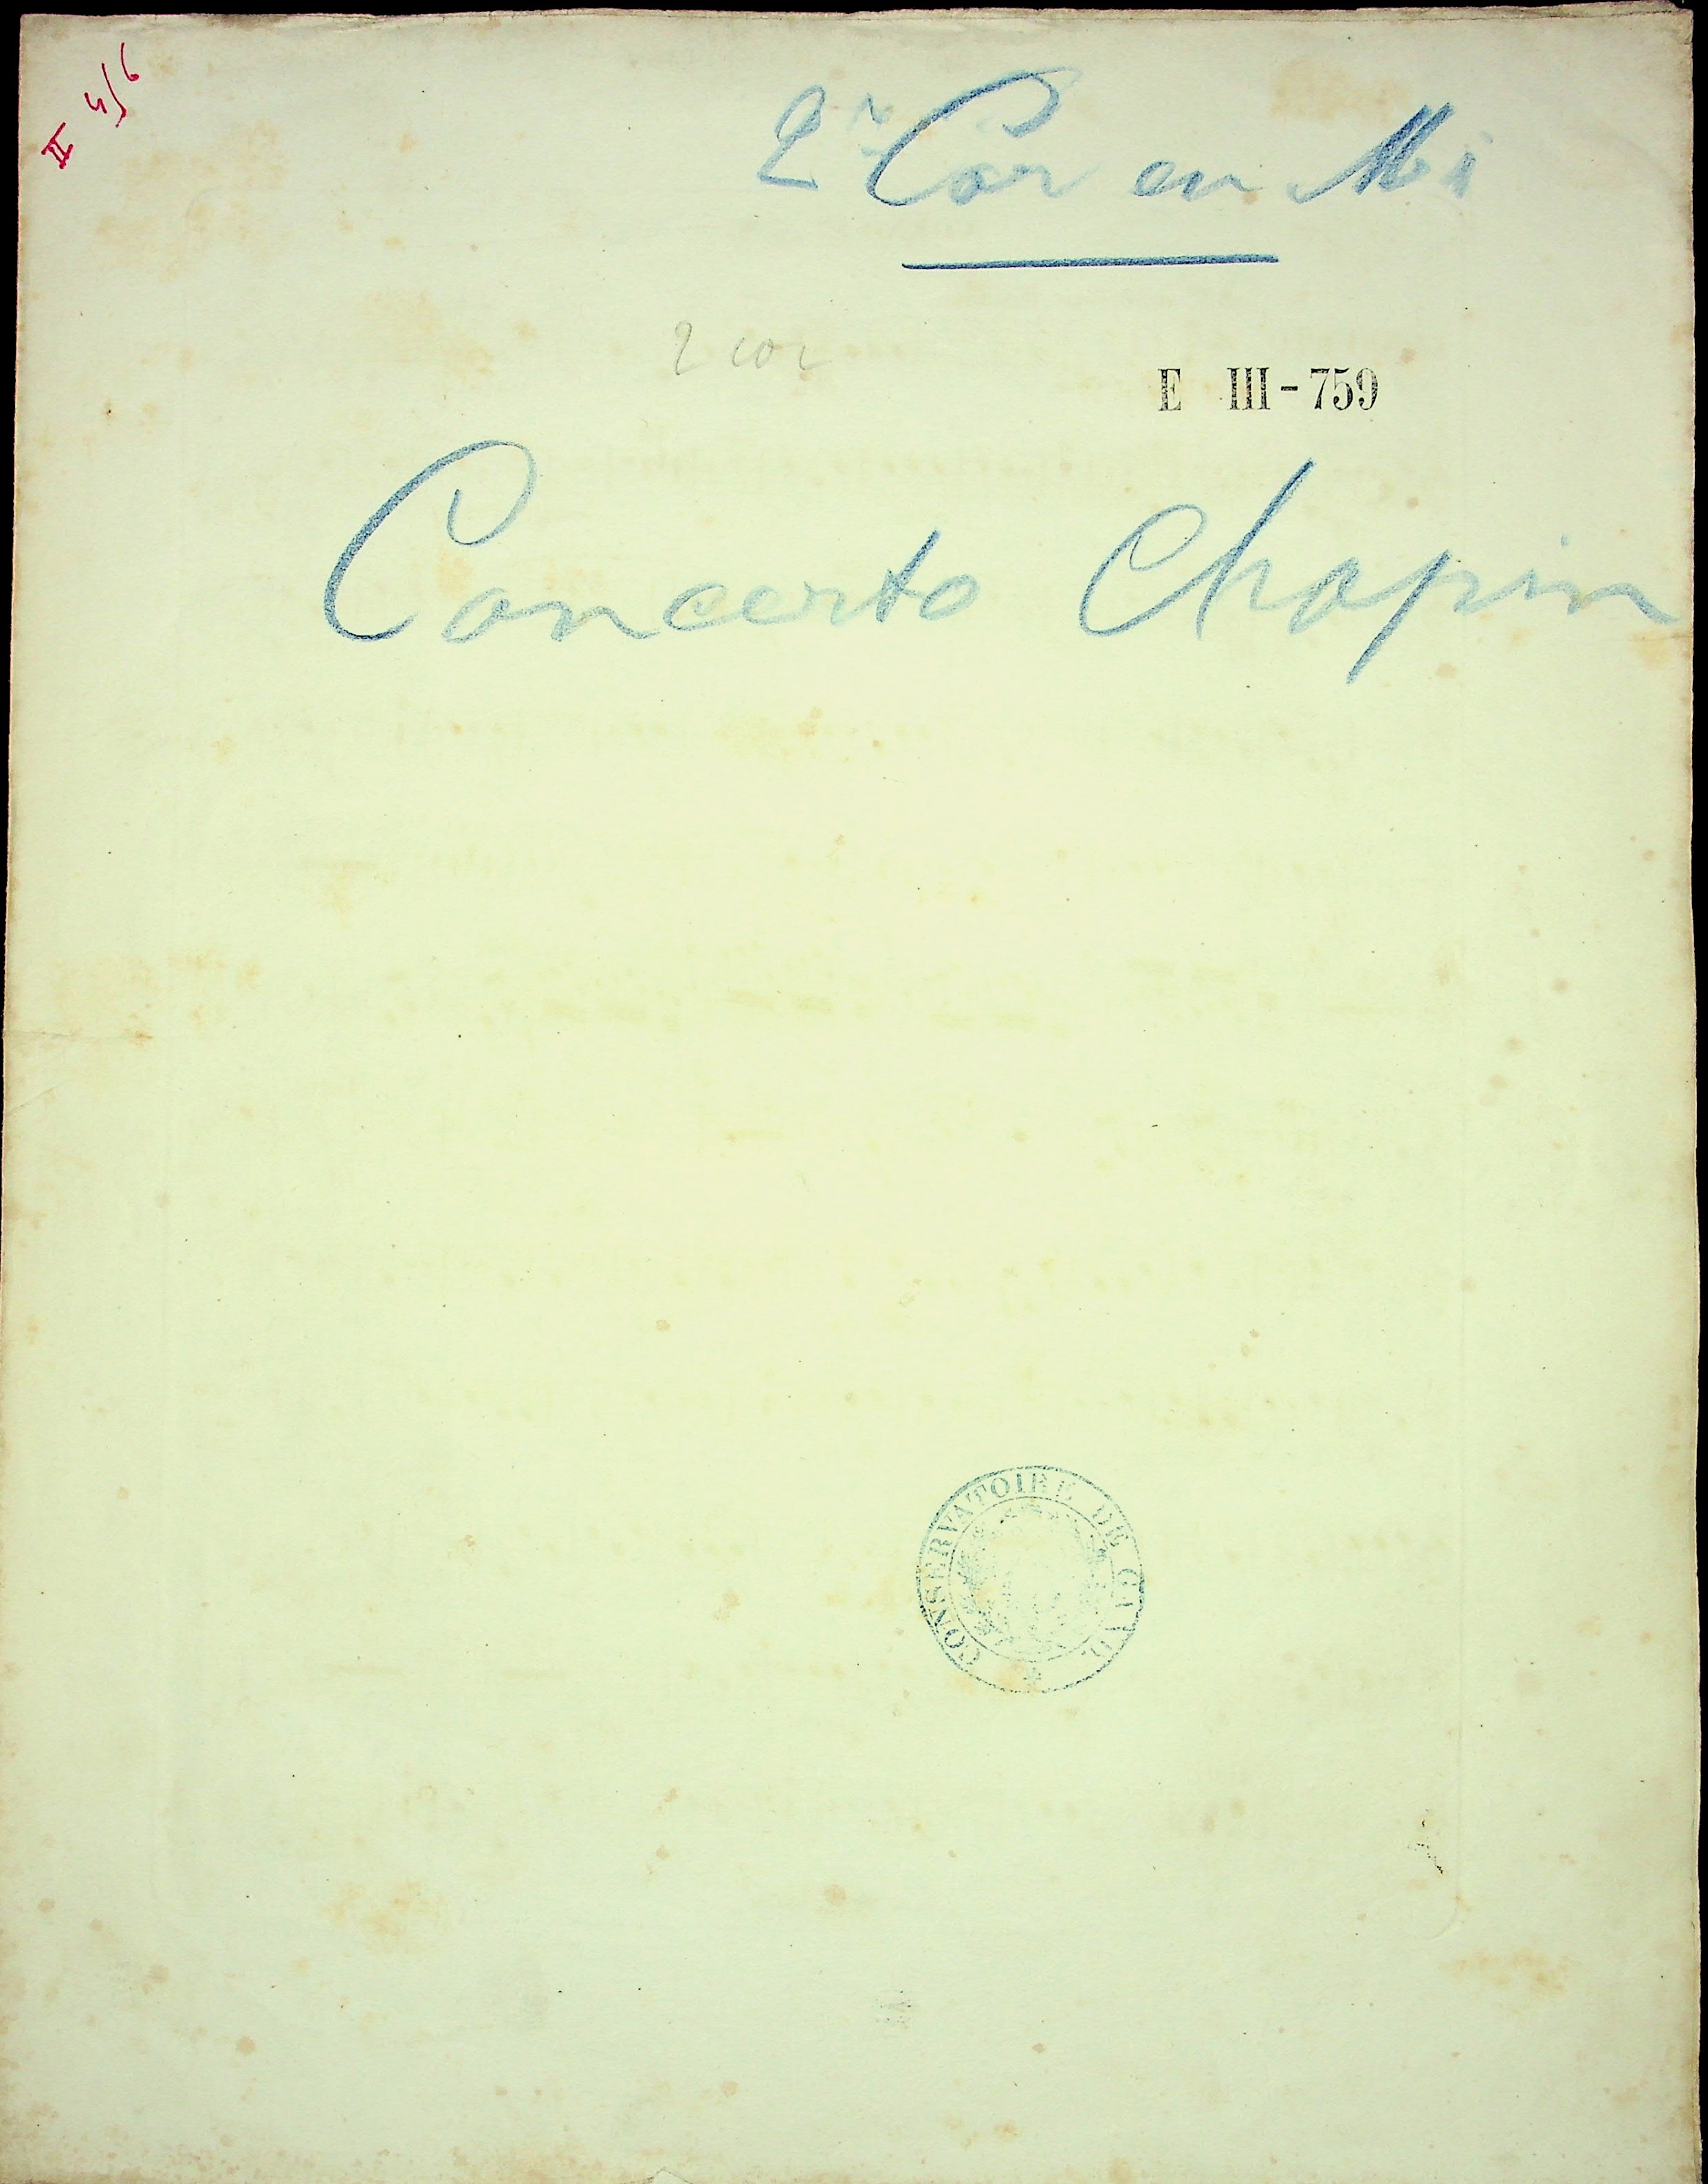 II 4/6
2e Cor en Mi
2 cor
E III-759
Concerto Chopin
CONSERVATOIRE DE GAND